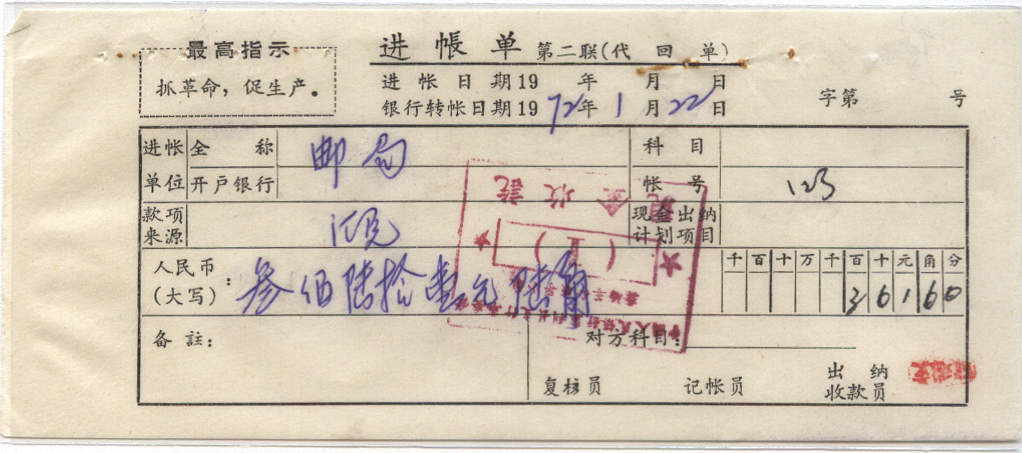 最高指示
抓革命，促生产。
进帐单 第二联(代回单)
进帐日期19 年 月 日
银行转帐日期1972年1月22日
字第 号
进帐单位 全称 邮局 科目
开户银行 帐号 123
款项来源 汇兑 现金出纳计划项目
人民币(大写): 叁佰陆拾壹元陆角 千百十万千百十元角分
36160
备註: 对方科目:
复核员 记帐员 出纳收款员
金收讫